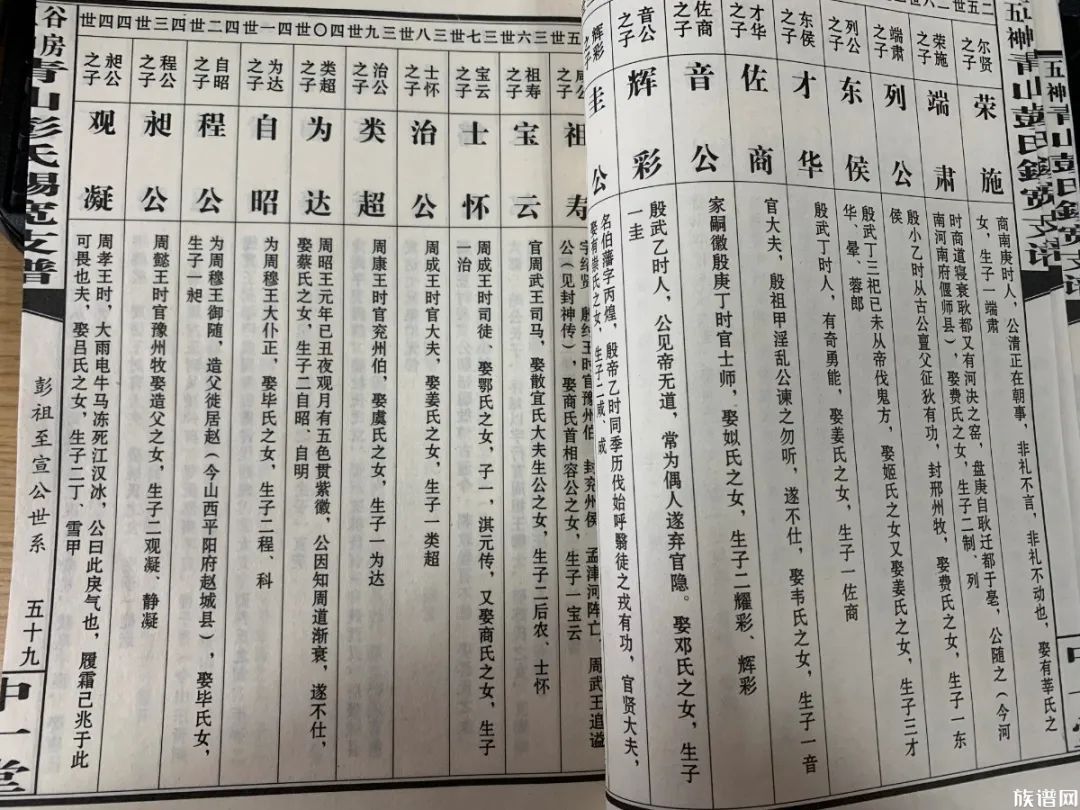 尔贤之子
荣施
商南庚时人，公清正在朝事，非礼不言，非礼不动也，娶有莘氏之女，生子一端肃
荣施之子
端肃
时商道寝衰耿都又有河决之窑，盘庚自耿迁都于亳，公随之（今河南河南府偃师县），娶费氏之女，生子二制、列
端肃之子
列公
殷小乙时从古公亶父征狄有功，封邢州牧，娶费氏之女，生子一东侯
列公之子
东侯
殷武丁三祀已未从帝伐鬼方，娶姬氏之女又娶姜氏之女，生子三才华、晕、蓉郎
东侯之子
才华
殷武丁时人，有奇勇能，娶姜氏之女，生子一佐商
才华之子
佐商
官大夫，殷祖甲淫乱公谏之勿听，遂不仕，娶韦氏之女，生子一音
佐商之子
音公
家嗣徽殷庚丁时官士师，娶姒氏之女，生子二耀彩、辉彩
音公之子
辉彩
殷武乙时人，公见帝无道，常为偶人遂弃官隐。娶邓氏之女，生子一圭
辉彩之子
圭公
名伯藩字丙煌，殷帝乙时同季历伐始呼翳徒之戎有功，官贤大夫，娶有崇氏之女，生子二
世五
祖寿
殷纣王时官豫州伯，封兖州侯，孟津河阵亡，周武王追谥公（见封神传），娶商氏首相容公之女，生子一宝云
世六三
祖寿之子
宝云
官周武王司马，娶散宜氏大夫生公之女，生子二后农、士怀
世七三
宝云之子
士怀
周成王时司徒、娶鄂氏之女，子一，淇元传，又娶商氏之女，生子一治
世八三
士怀之子
治公
周成王时官大夫，娶姜氏之女，生子一类超
世九三
治公之子
类超
周康王时官兖州伯，娶虞氏之女，生子一为达
世〇四
类超之子
为达
周昭王元年已丑夜观月有五色贯紫徽，公因知周道渐衰，遂不仕，娶蔡氏之女，生子二自昭、自明
世一四
为达之子
自昭
为周穆王大仆正，娶毕氏之女，生子二程、科
世二四
自昭之子
程公
为周穆王御随，造父徙居赵（今山西平阳府赵城县），娶毕氏女，生子一昶
世三四
程公之子
昶公
周懿王时官豫州牧娶造父之女，生子二观凝、静凝
世四四
昶公之子
观凝
周孝王时，大雨电牛马冻死江汉冰，公曰此戾气也，履霜己兆于此可畏也夫，娶吕氏之女，生子二丁、雪甲
谷房青山彭氏锡宽支谱
彭祖至宣公世系
五十九
中一堂
族谱网